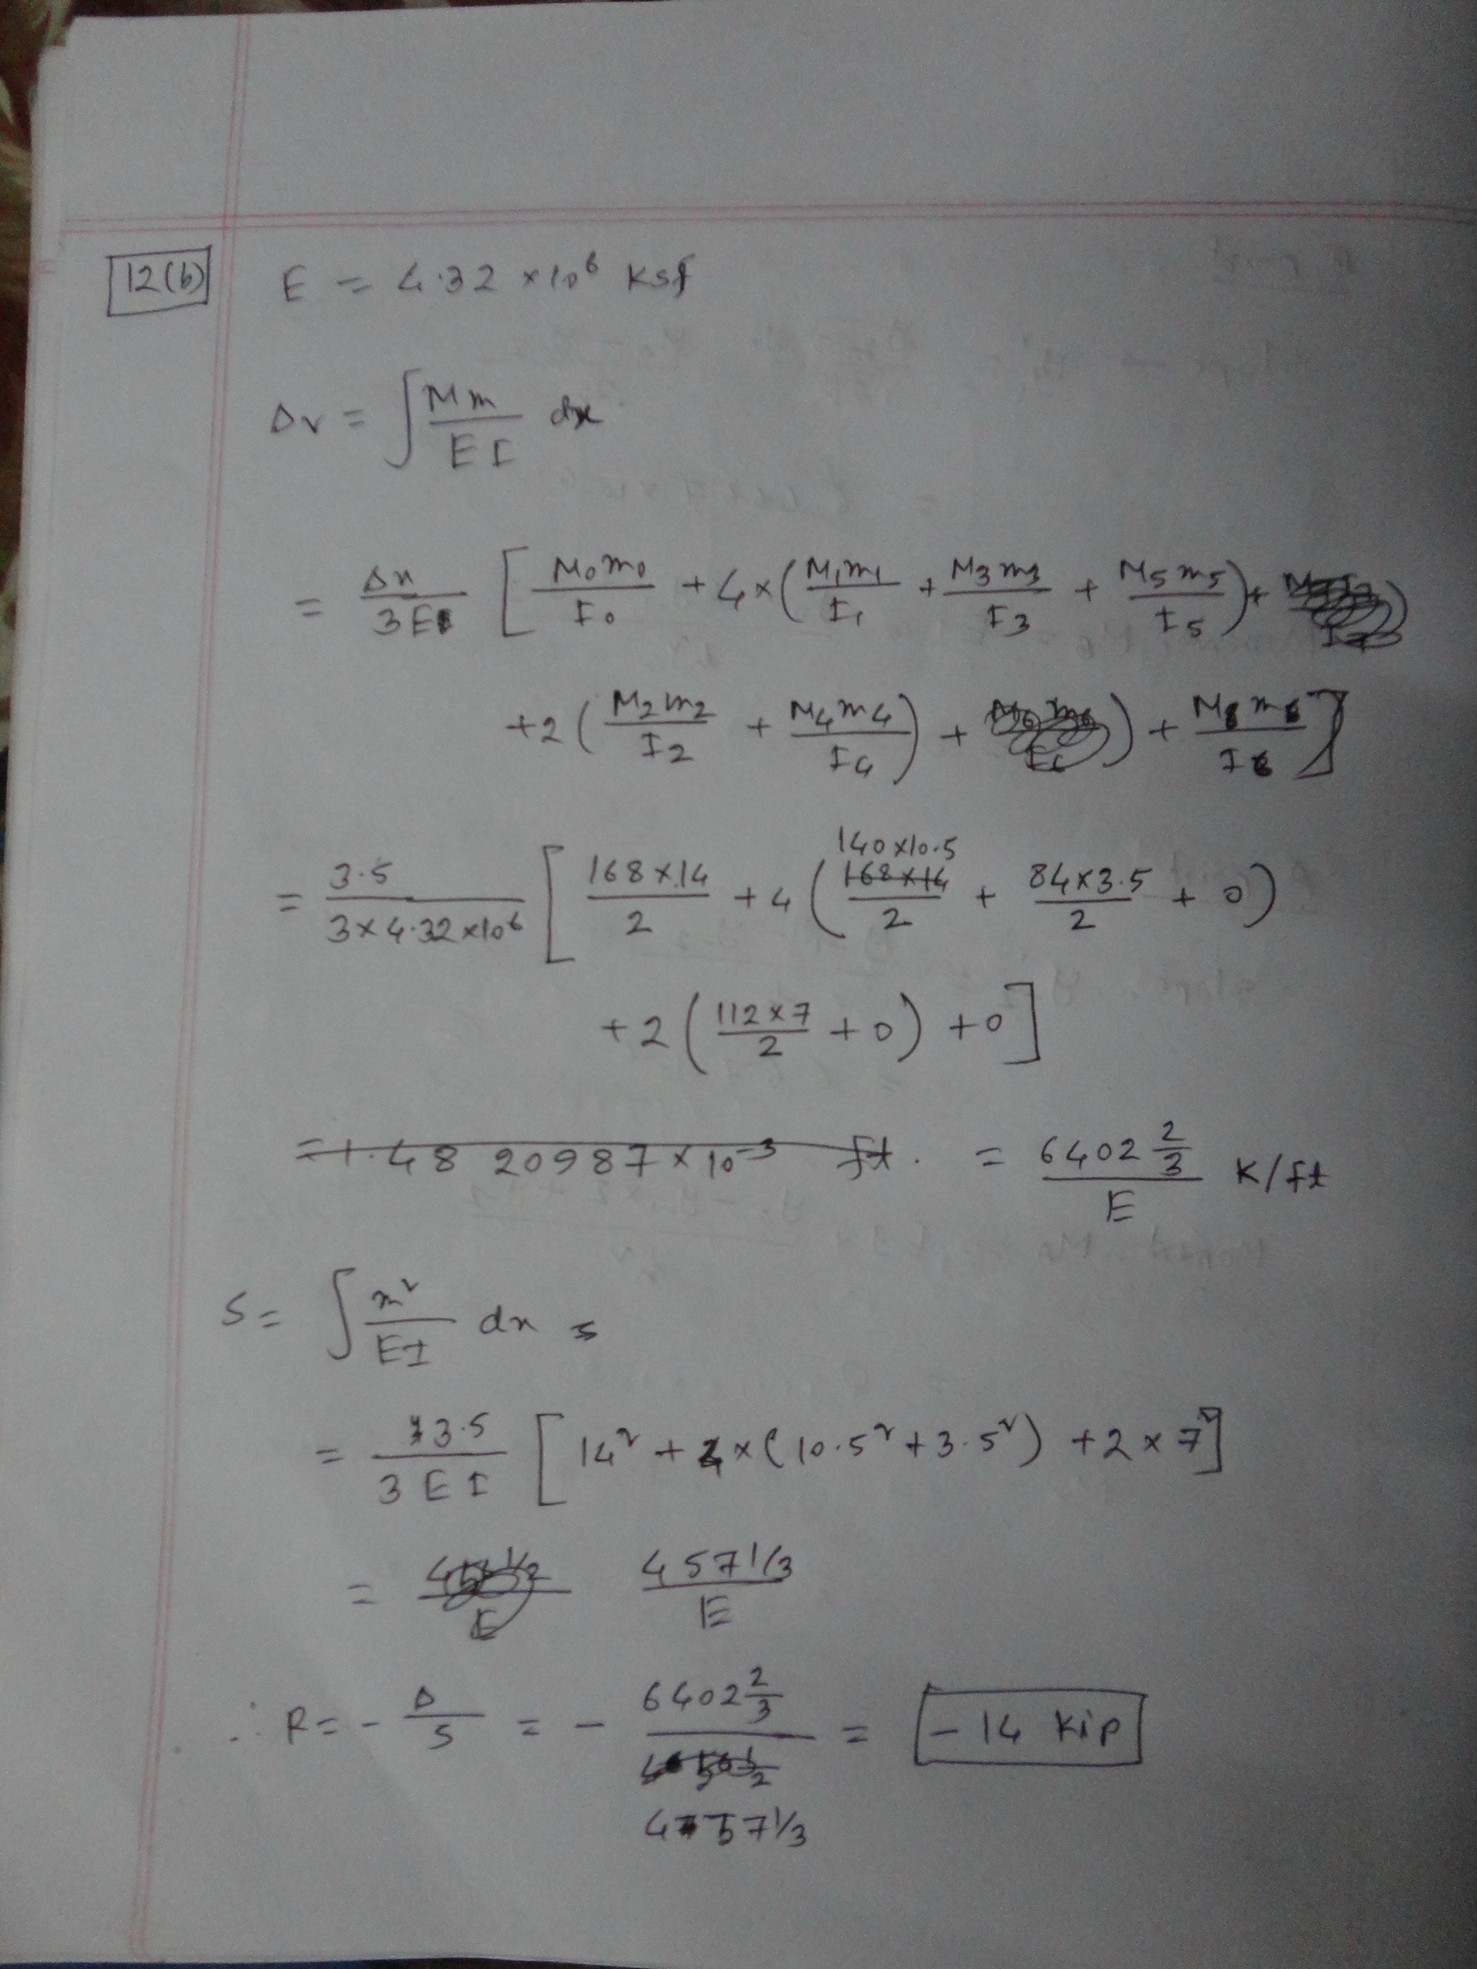 12(b) E = 4.32 × 10⁶ Ksf
Δv = ∫ Mm/EI dx
= Δx/3E [ M₀m₀/I₀ + 4×( M₁m₁/I₁ + M₃m₃/I₃ + M₅m₅/I₅ ) +
+2 ( M₂m₂/I₂ + M₄m₄/I₄ ) + ) + M₆m₆/I₆ ]
= 3.5/(3×4.32×10⁶) [ 168×14/2 + 4 ( 140×10.5/2 + 84×3.5/2 + 0 )
+ 2 ( 112×7/2 + 0 ) + 0 ]
= 1.4820987×10⁻³ ft. = 6402 2/3 / E K/ft
S = ∫ m²/EI dx =
= 3.5/3EI [ 14² + 4×(10.5² + 3.5²) + 2×7² ]
= 457 1/3 / E
∴ R = - Δ/S = - 6402 2/3 / 457 1/3 = - 14 kip